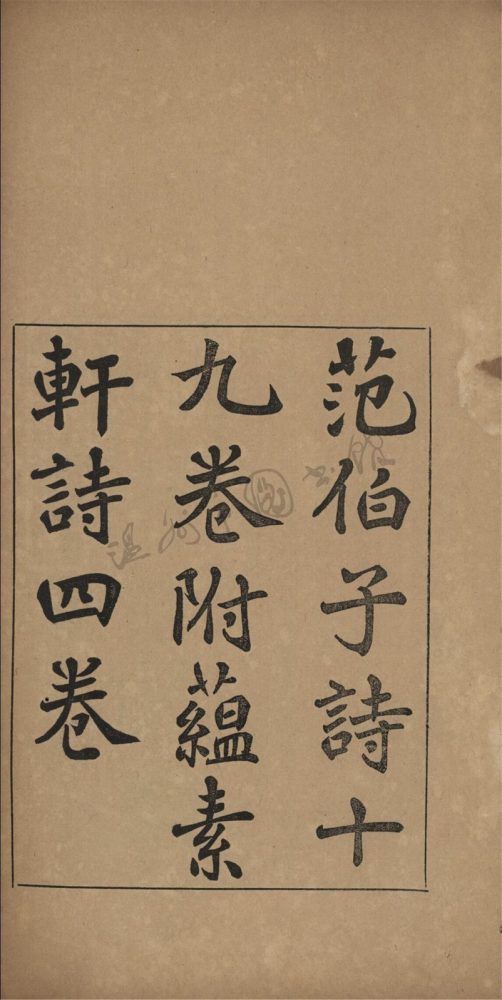 范伯子詩十
九卷附蘊素
軒詩四卷